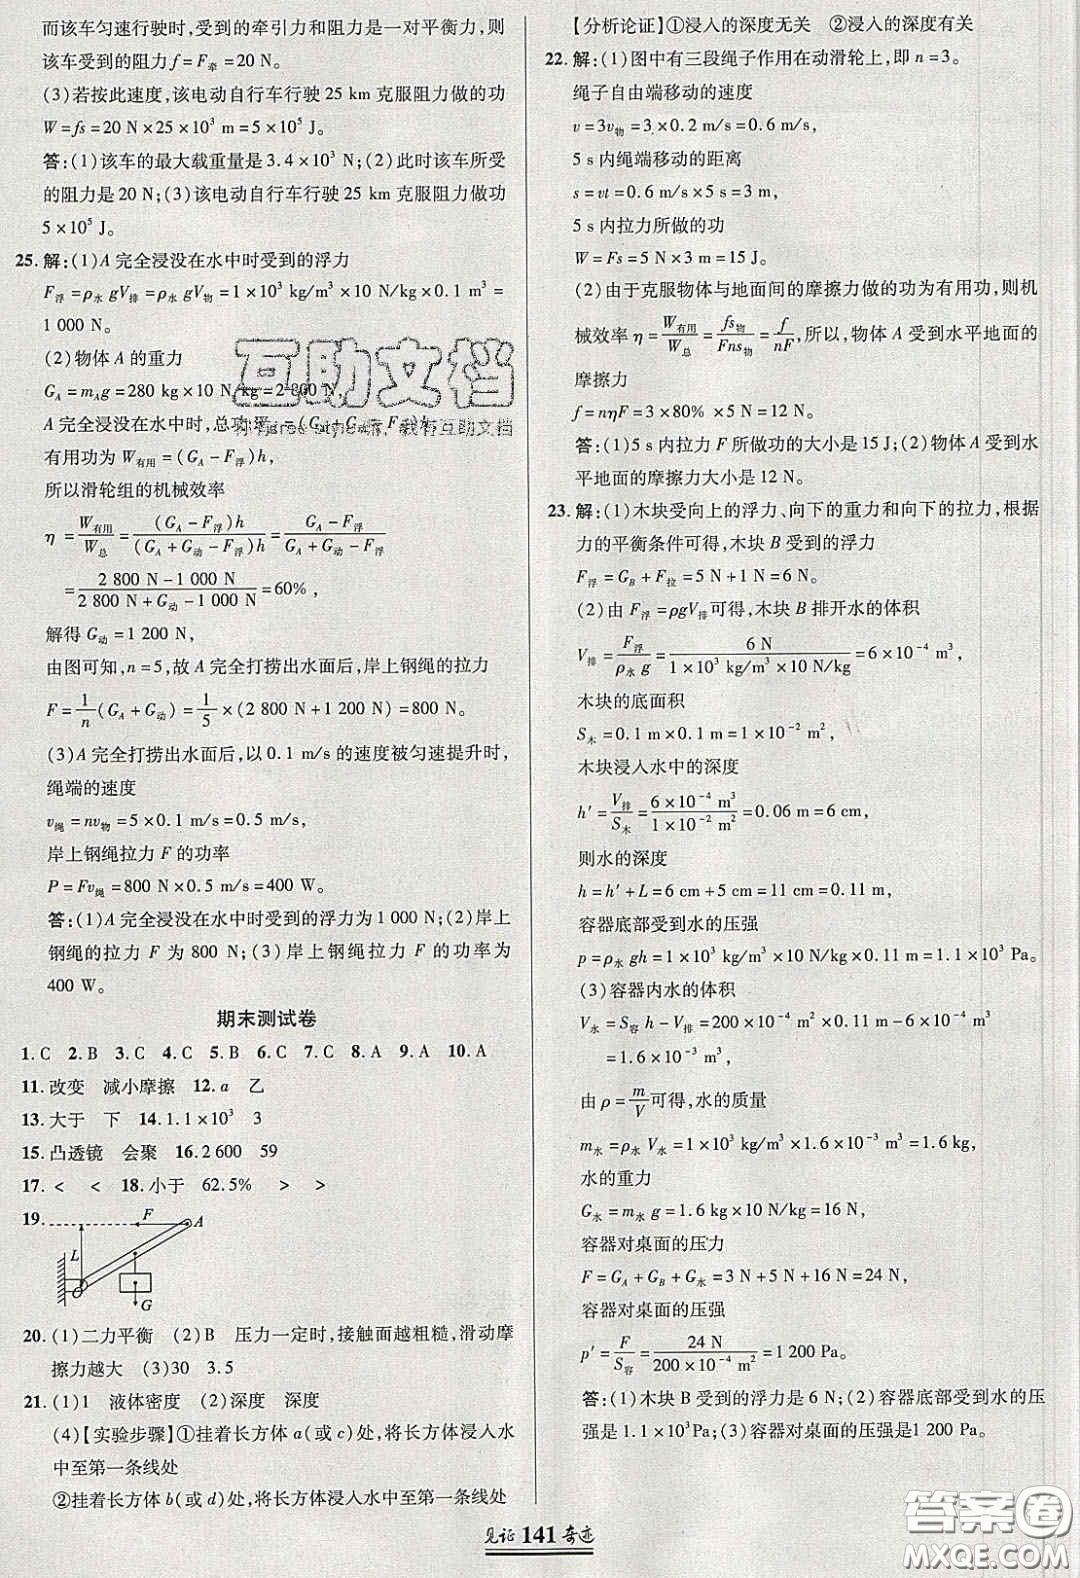 而该车匀速行驶时,受到的牵引力和阻力是一对平衡力,则
该车受到的阻力 f=F牵=20 N。
(3)若按此速度,该电动自行车行驶 25 km 克服阻力做的功
W=fs=20 N×25×10³ m=5×10⁵ J。
答:(1)该车的最大载重量是3.4×10³ N;(2)此时该车所受
的阻力是 20 N;(3)该电动自行车行驶 25 km 克服阻力做功
5×10⁵ J。
25.解:(1)A 完全浸没在水中时受到的浮力
F浮=ρ水 gV排=ρ水 gV物=1×10³ kg/m³×10 N/kg×0.1 m³=
1 000 N。
(2)物体 A 的重力
G_A=m_A g=280 kg×10 N/kg=2 800 N,
A 完全浸没在水中时,总功 =(G_A+G动-F浮)h
有用功为 W有用=(G_A-F浮)h,
所以滑轮组的机械效率
η=W有用/W总=(G_A-F浮)h/(G_A+G动-F浮)h=(G_A-F浮)/(G_A+G动-F浮)
=(2 800 N-1 000 N)/(2 800 N+G动-1 000 N)=60%,
解得 G动=1 200 N,
由图可知,n=5,故 A 完全打捞出水面后,岸上钢绳的拉力
F=1/n(G_A+G动)=1/5×(2 800 N+1 200 N)=800 N。
(3)A 完全打捞出水面后,以 0.1 m/s 的速度被匀速提升时,
绳端的速度
v绳=nv物=5×0.1 m/s=0.5 m/s,
岸上钢绳拉力 F 的功率
P=Fv绳=800 N×0.5 m/s=400 W。
答:(1)A 完全浸没在水中时受到的浮力为 1 000 N;(2)岸上
钢绳的拉力 F 为 800 N;(3)岸上钢绳拉力 F 的功率为
400 W。
期末测试卷
1.C 2.B 3.C 4.C 5.B 6.C 7.C 8.A 9.A 10.A
11.改变 减小摩擦 12.a 乙
13.大于 下 14.1.1×10³ 3
15.凸透镜 会聚 16.2 600 59
17.< < 18.小于 62.5% > >
19.
F A
L
G
O
20.(1)二力平衡 (2)B 压力一定时,接触面越粗糙,滑动摩
擦力越大 (3)30 3.5
21.(1)1 液体密度 (2)深度 深度
(4)【实验步骤】①挂着长方体 a(或 c)处,将长方体浸入水
中至第一条线处
②挂着长方体 b(或 d)处,将长方体浸入水中至第一条线处
【分析论证】①浸入的深度无关 ②浸入的深度有关
22.解:(1)图中有三段绳子作用在动滑轮上,即 n=3。
绳子自由端移动的速度
v=3v物=3×0.2 m/s=0.6 m/s,
5 s 内绳端移动的距离
s=vt=0.6 m/s×5 s=3 m,
5 s 内拉力所做的功
W=Fs=5 N×3 m=15 J。
(2)由于克服物体与地面间的摩擦力做的功为有用功,则机
械效率 η=W有用/W总=fs物/Fns物=f/nF,所以,物体 A 受到水平地面的
摩擦力
f=nηF=3×80% ×5 N=12 N。
答:(1)5 s 内拉力 F 所做功的大小是 15 J;(2)物体 A 受到水
平地面的摩擦力大小是 12 N。
23.解:(1)木块受向上的浮力、向下的重力和向下的拉力,根据
力的平衡条件可得,木块 B 受到的浮力
F浮=G_B+F拉=5 N+1 N=6 N。
(2)由 F浮=ρgV排可得,木块 B 排开水的体积
V排=F浮/ρ水 g=6 N/(1×10³ kg/m³×10 N/kg)=6×10⁻⁴ m³,
木块的底面积
S木=0.1 m×0.1 m=1×10⁻² m²,
木块浸入水中的深度
h′=V排/S木=6×10⁻⁴ m³/1×10⁻² m²=0.06 m=6 cm,
则水的深度
h=h′+L=6 cm+5 cm=11 cm=0.11 m,
容器底部受到水的压强
p=ρ水 gh=1×10³ kg/m³×10 N/kg×0.11 m=1.1×10³ Pa。
(3)容器内水的体积
V水=S容 h-V排=200×10⁻⁴ m²×0.11 m-6×10⁻⁴ m³
=1.6×10⁻³ m³,
由 ρ=m/V可得,水的质量
m水=ρ水 V水=1×10³ kg/m³×1.6×10⁻³ m³=1.6 kg,
水的重力
G水=m水 g=1.6 kg×10 N/kg=16 N,
容器对桌面的压力
F=G_A+G_B+G水=3 N+5 N+16 N=24 N,
容器对桌面的压强
p′=F/S容=24 N/200×10⁻⁴ m²=1 200 Pa。
答:(1)木块 B 受到的浮力是 6 N;(2)容器底部受到水的压
强是 1.1×10³Pa;(3)容器对桌面的压强是1 200 Pa。
见证 141 奇迹
互助文档
答案圈
MXQE.COM